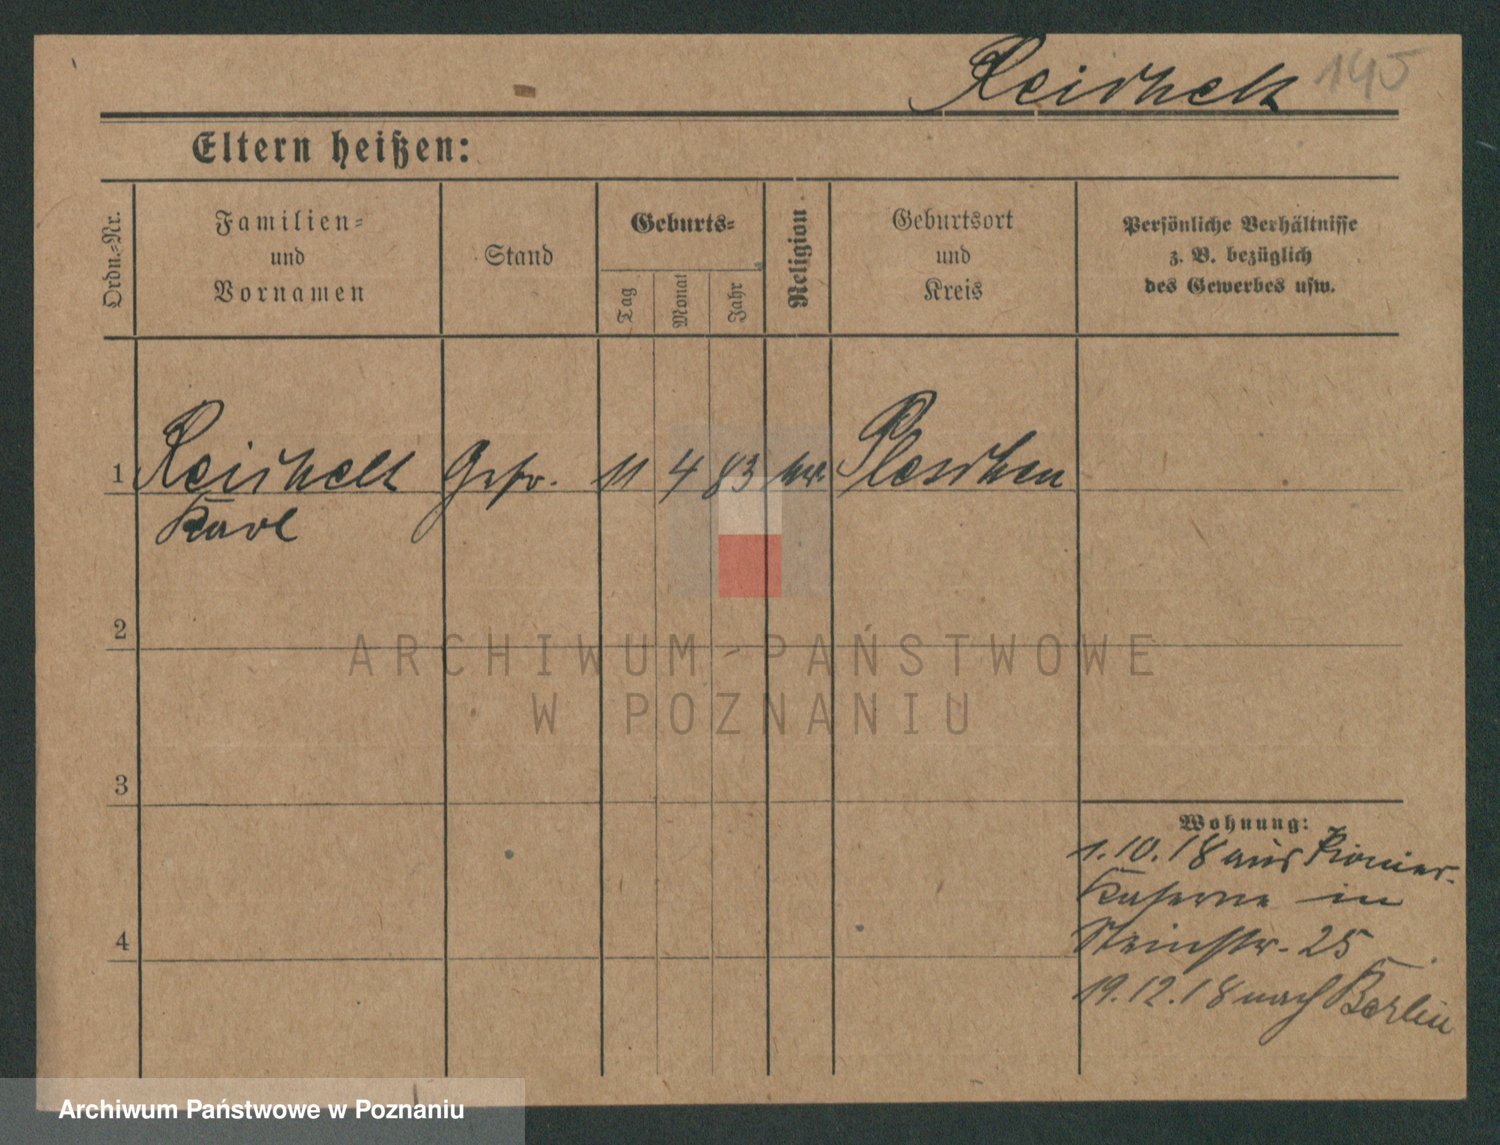 Reichelt 145
Eltern heißen:
Ordn.-Nr.
Familien-
und
Vornamen
Stand
Geburts-
Tag
Monat
Jahr
Religion
Geburtsort
und
Kreis
Persönliche Verhältnisse
z. B. bezüglich
des Gewerbes usw.
1 Reichelt Gefr. 11 4 83 Pleschen
Karl
2
3
4
Wohnung:
1.10.18 aus Pionier-
Kaserne in
Steinstr. 25
19.12.18 nach Berlin
ARCHIWUM PAŃSTWOWE
W POZNANIU
Archiwum Państwowe w Poznaniu